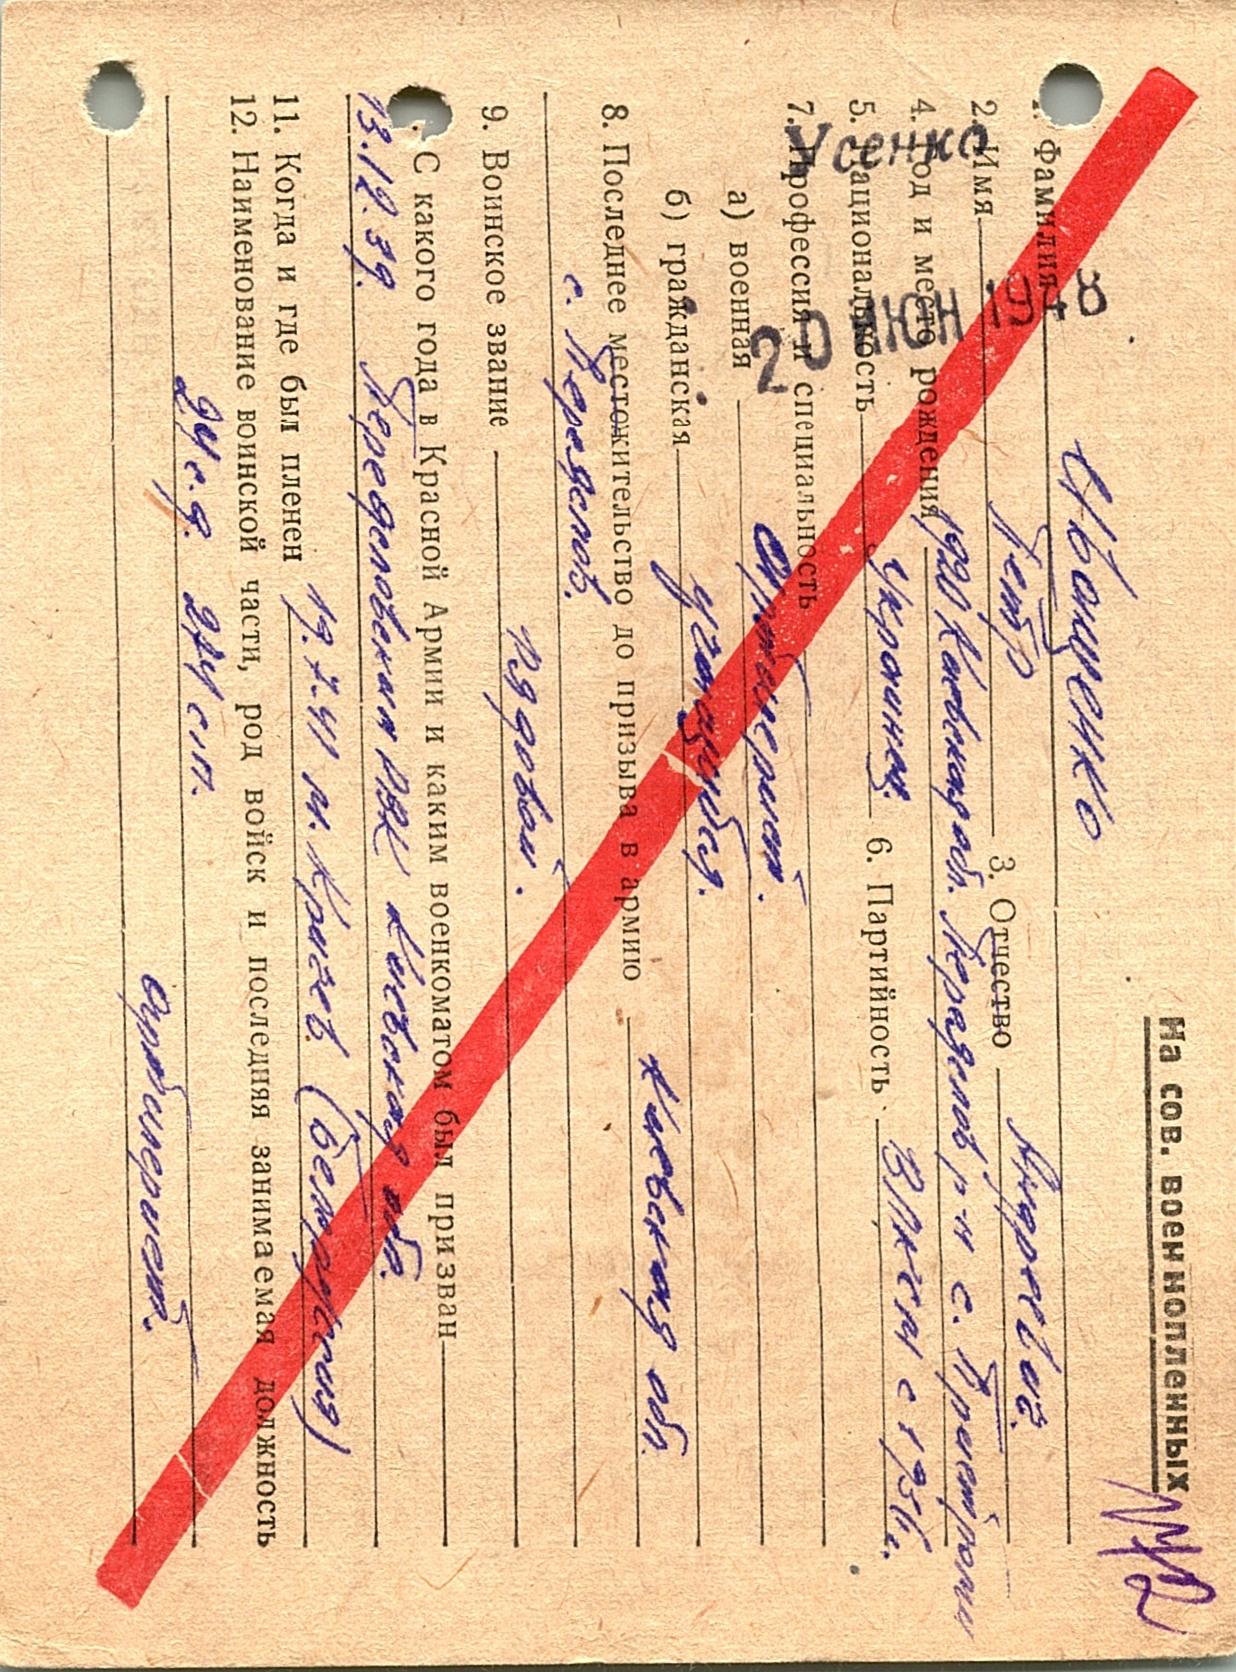 На сов. военнопленных
1. Фамилия Иващенко
2. Имя Петр 3. Отчество Андреевич.
4. Год и место рождения 1920 Киевская обл. р-н с.
5. Национальность Украинец. 6. Партийность ВЛКСМ с 1936 г.
7. Профессия и специальность
а) военная Артиллерист.
б) гражданская
8. Последнее местожительство до призыва в армию Киевская обл.
с. Переяслов.
9. Воинское звание Рядовой.
С какого года в Красной Армии и каким военкоматом был призван
13.12.39. Переясловский РВК Киевская обл.
11. Когда и где был пленен 19.7.41 м. (белоруссия)
12. Наименование воинской части, род войск и последняя занимаемая должность
24 с.д. 274 с.п.
артиллерист.
Усенко
20 ИЮН 1948